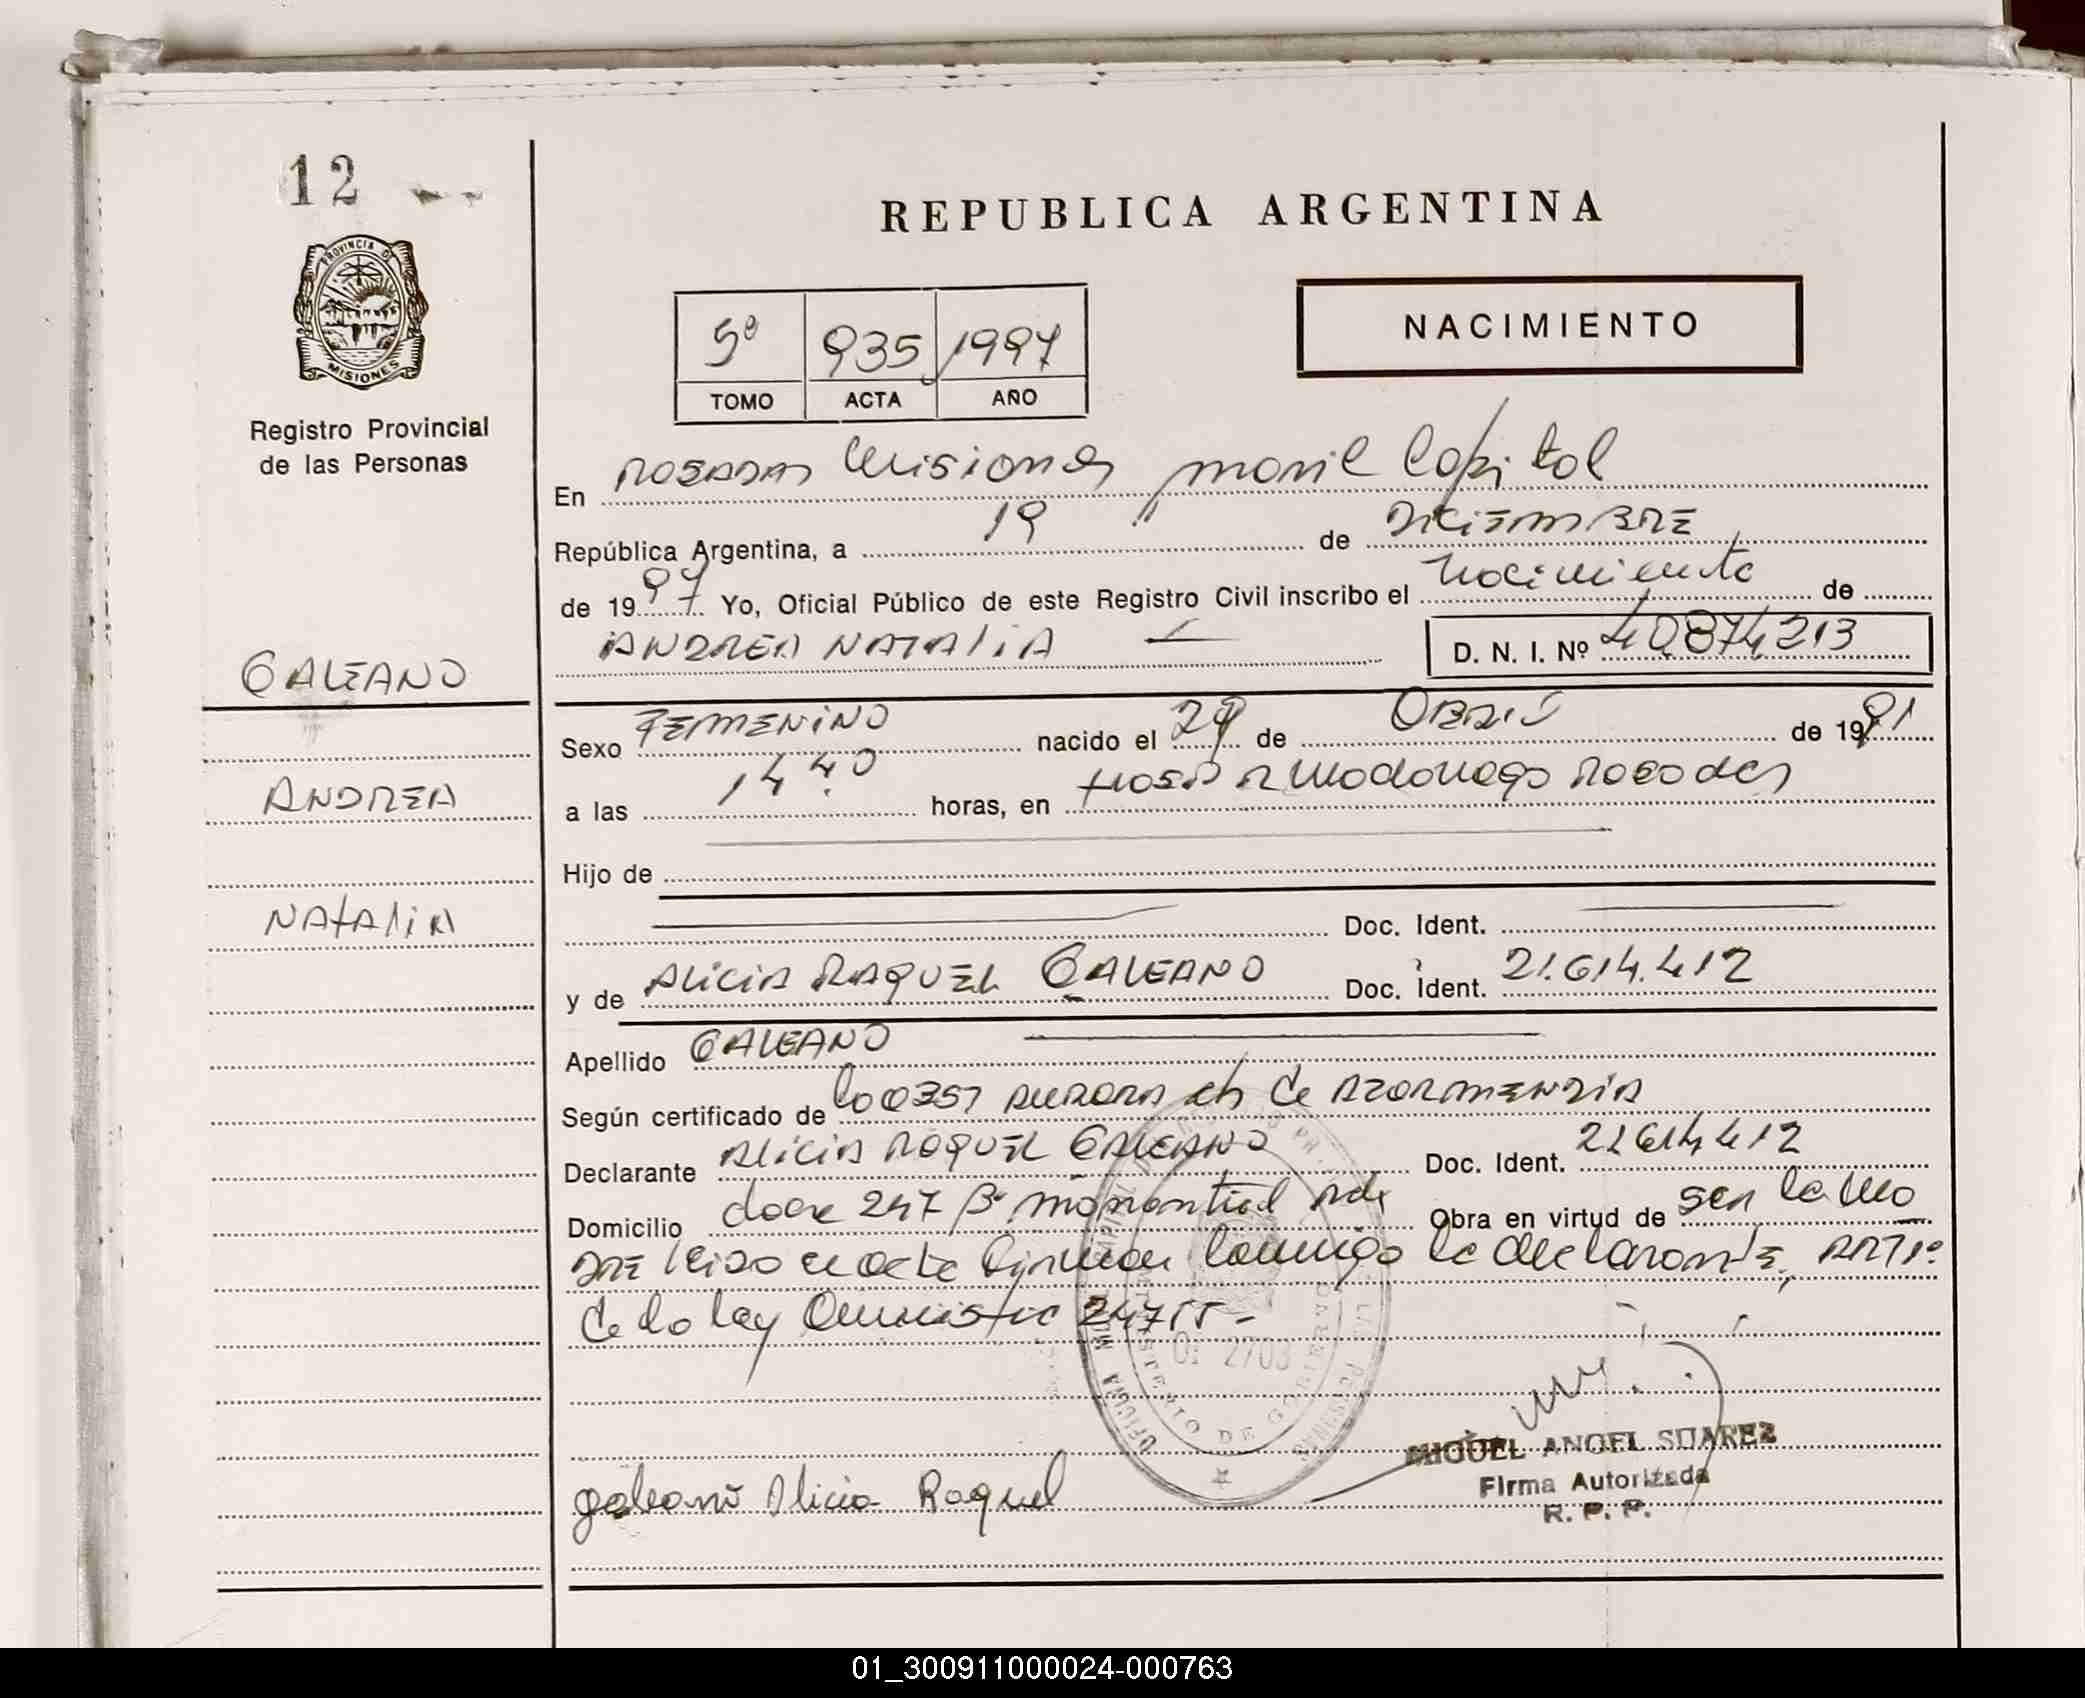 12
REPUBLICA ARGENTINA
PROVINCIA DE
MISIONES
Registro Provincial
de las Personas
5º 935 1997
TOMO ACTA AÑO
NACIMIENTO
En POSADAS Misiones movil Capital
República Argentina, a 19 de DICIEMBRE
de 1997 Yo, Oficial Público de este Registro Civil inscribo el Nacimiento de
ANDREA NATALIA
D. N. I. Nº 40.874.213
GALEANO
ANDREA
NATALIA
Sexo FEMENINO nacido el 29 de ABRIL de 1991
a las 14 40 horas, en HOSP R Madariaga Posadas
Hijo de
Doc. Ident.
y de ALICIA RAQUEL GALEANO Doc. Ident. 21.614.412
Apellido GALEANO
Según certificado de AURORA de AZORMENDIA
Declarante ALICIA RAQUEL GALEANO Doc. Ident. 21614412
Domicilio 247 Bº manantial Pdas Obra en virtud de ser la MA
DRE leido el acta firman conmigo la declarante, ART 1º
de la ley 24755-
OFICINA MOVIL CAPITAL
MINISTERIO DE GOBIERNO
MISIONES
Of 2703
MIGUEL ANGEL SUAREZ
Firma Autorizada
R. P. P.
galeano Alicia Raquel
01_300911000024-000763